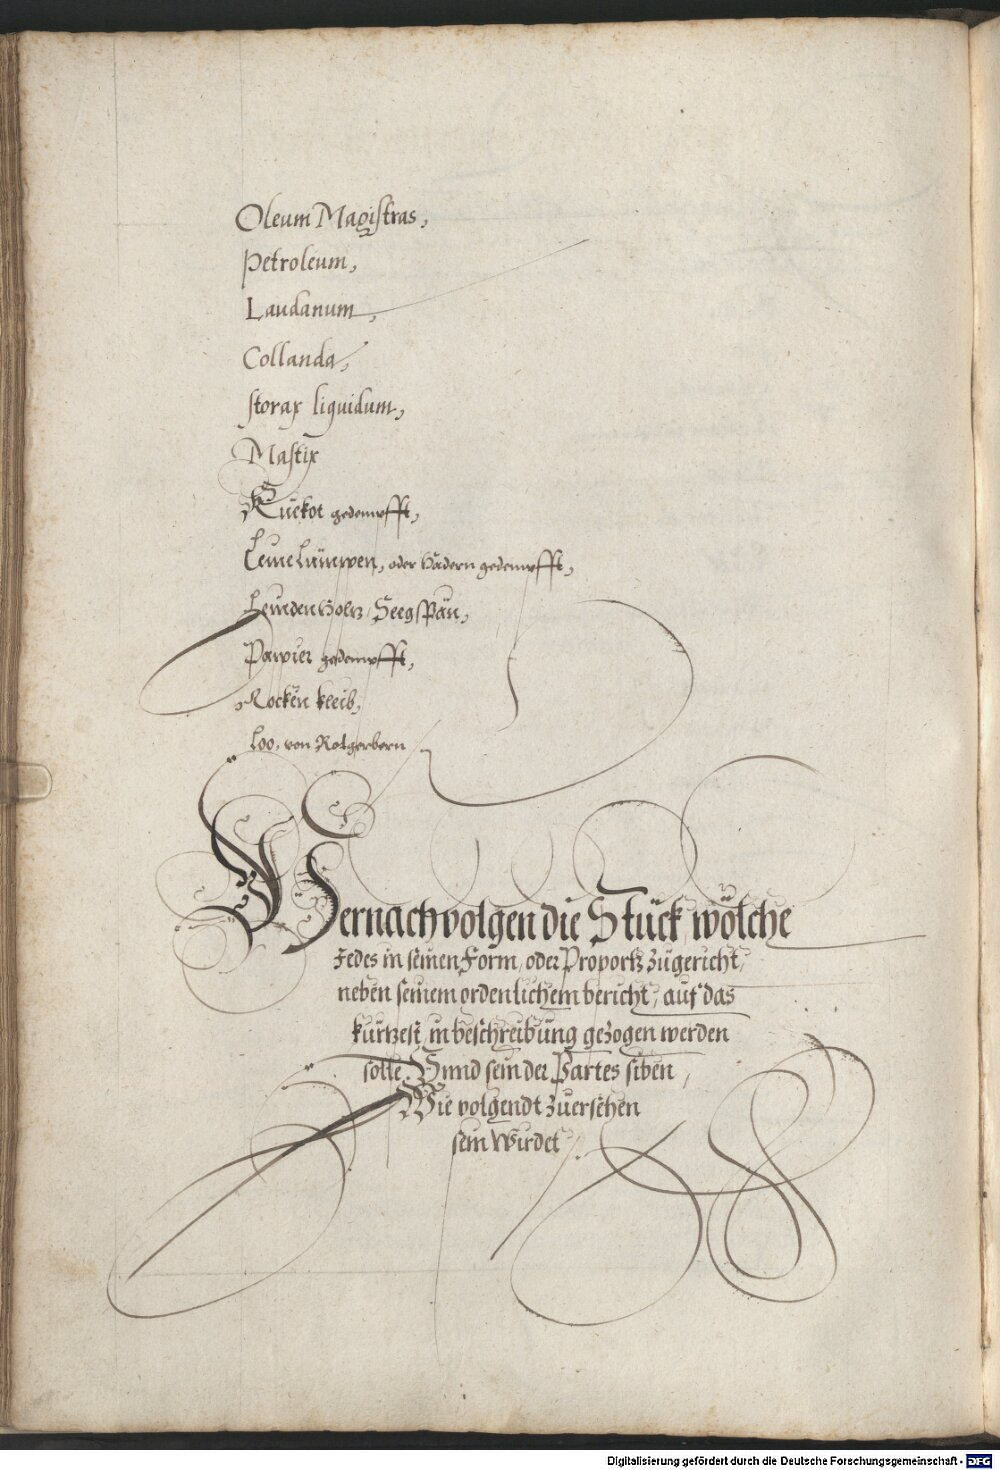 Oleum Magistras,
Petroleum,
Laudanum,
Collanda,
Storax liquidum,
Mastix
Kuekot gedempfft,
Leine Lümppen, oder Hadern gedempfft,
Leinden Holtz, Seegspän,
Pappier gedempfft,
Rocken kleib,
Loo, von Rotgerbern
Hernach volgen die Stück wölche
Jedes in seinen Form, oder Proportz zugericht,
neben seinem ordenlichem bericht, auf das
kurtzest, in beschreibung gezogen werden
solle. Vnnd sein der Partes siben,
Wie volgendt zuersehen
sein Wirdet
Digitalisierung gefördert durch die Deutsche Forschungsgemeinschaft - DFG